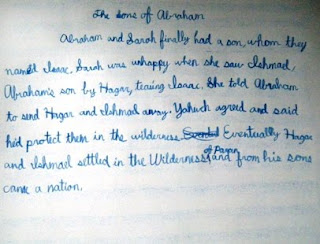 The sons of Abraham
Abraham and Sarah finally had a son, whom they
named Isaac. Sarah was unhappy when she saw Ishmael,
Abraham's son by Hagar, teasing Isaac. She told Abraham
to send Hagar and Ishmael away. Yahweh agreed and said
he'd protect them in the wilderness. Eventually Hagar
and Ishmael settled in the Wilderness of Paran, and from his sons
came a nation.